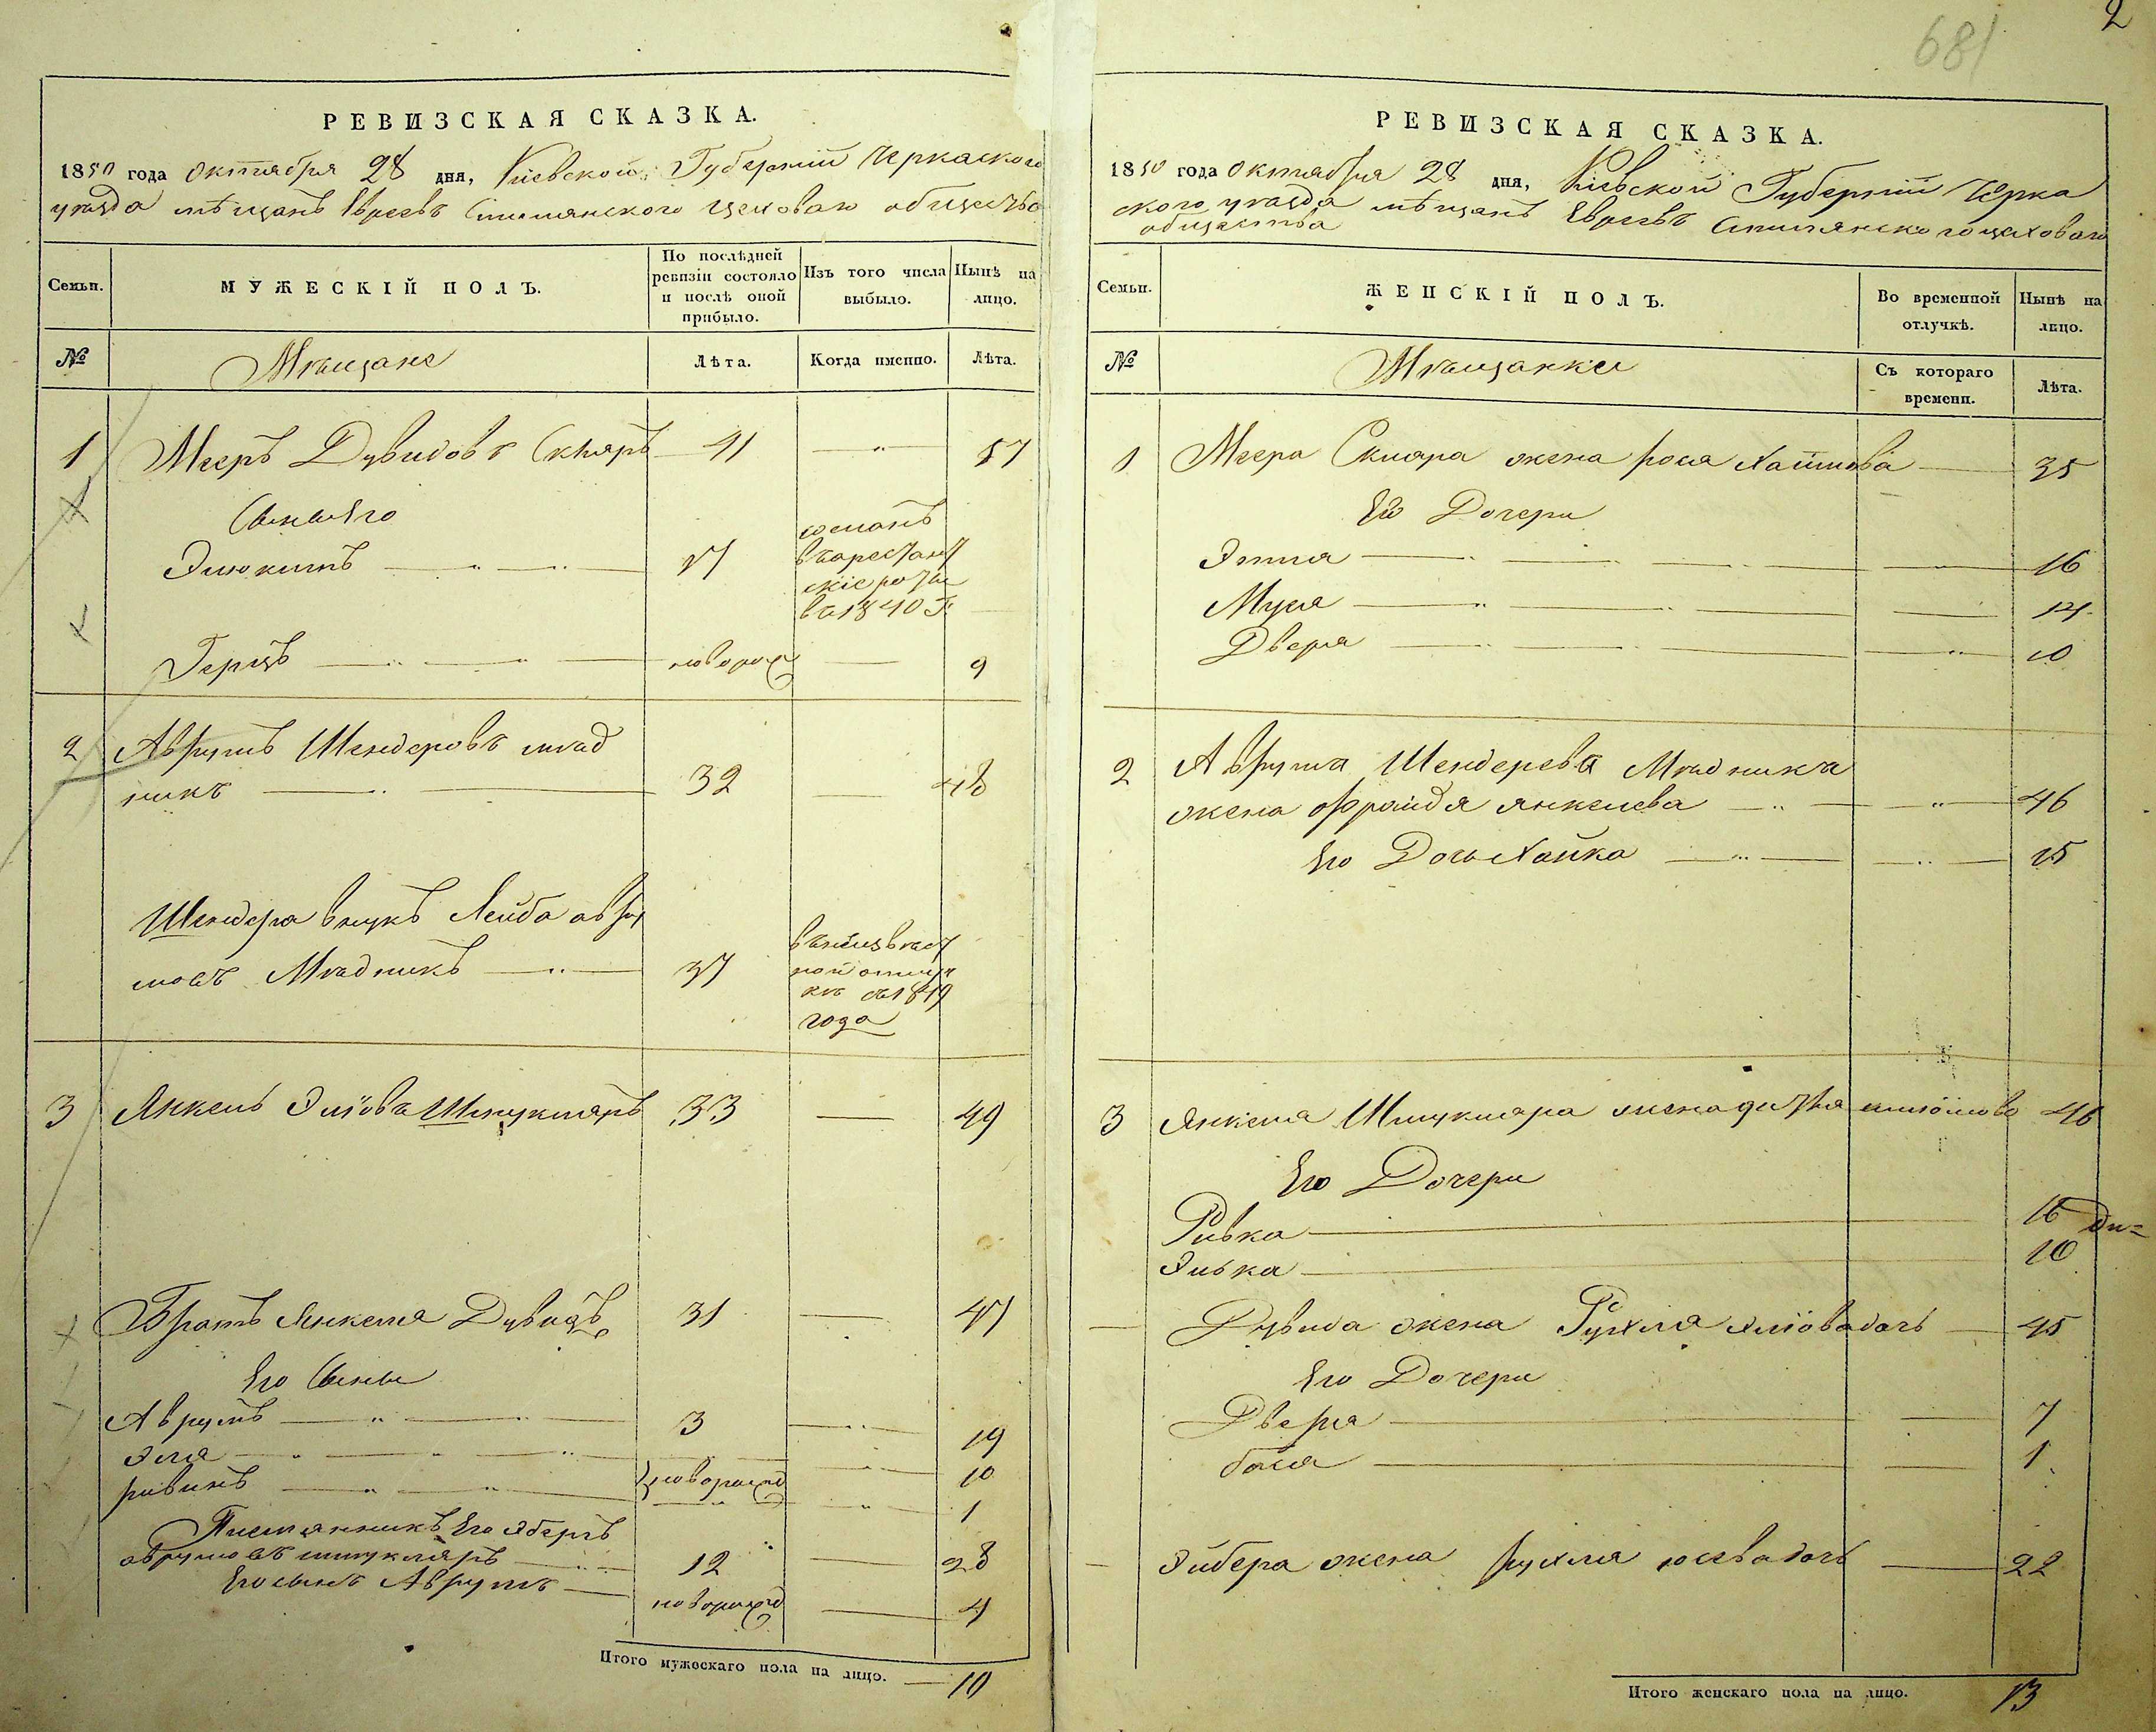 2
681
РЕВИЗСКАЯ СКАЗКА.
1850 года Октября 28 дня, Киевской Губернии Черкаского
уезда мѣщанъ Евреевъ Смилянского цеховаго общества
Семьи.
МУЖЕСКІЙ ПОЛЪ.
По послѣдней ревизіи состояло и послѣ оной прибыло.
Изъ того числа выбыло.
Нынѣ на лицо.
№
Мѣщане
Лѣта.
Когда именно.
Лѣта.
1 Мееръ Дувидовъ Скляръ 41 — 57
Сыны Его
Элюкимъ 17
сосланъ
въ арестант
скіе роты
въ 1840 Г.
Герцъ новорож 9
2 Аврумъ Шендеровъ Мѣд
никъ 32 — 48
Шендера внукъ Лейба Авру
мовъ Мѣдникъ 37
въ неизвест
ной отлуч
кѣ съ 1849
года
3 Янкель Эліовъ Шмукляръ 33 — 49
Братъ Янкеля Дувидъ 31 — 47
Его Сыны
Аврумъ 3 — 19
Эля — 10
рувинъ новорожд — 1
Племянникъ Его Эберъ
Аврумовъ шмукляръ 12 — 28
Его сынъ Аврумъ новорожд — 4
Итого мужескаго пола на лицо. — 10
РЕВИЗСКАЯ СКАЗКА.
1850 года Октября 28 дня, Кіевской Губерніи Черка
ского уезда мѣщанъ Евреевъ Смилянского цеховаго
общества
Семьи.
ЖЕНСКІЙ ПОЛЪ.
Во временной отлучкѣ.
Нынѣ на лицо.
№
Мѣщанки
Съ котораго времени.
Лѣта.
1 Меера Скляра жена рося Хаимова 35
Его Дочери
Этля 16
Муся 14
Двера 10
2 Аврума Шендерева Мѣдника
жена Фрейда янкелева 46
Его Дочь Хайка 15
3 Янкеля Шмукляра жена 46
Его Дочери
Ривка 16
Элька 10
Дувида жена Рухля Эліова дочь 45
Его Дочери
Двера 7
бася 1
Эйбера жена рухля юсева дочь 22
Итого женскаго пола на лицо. 13